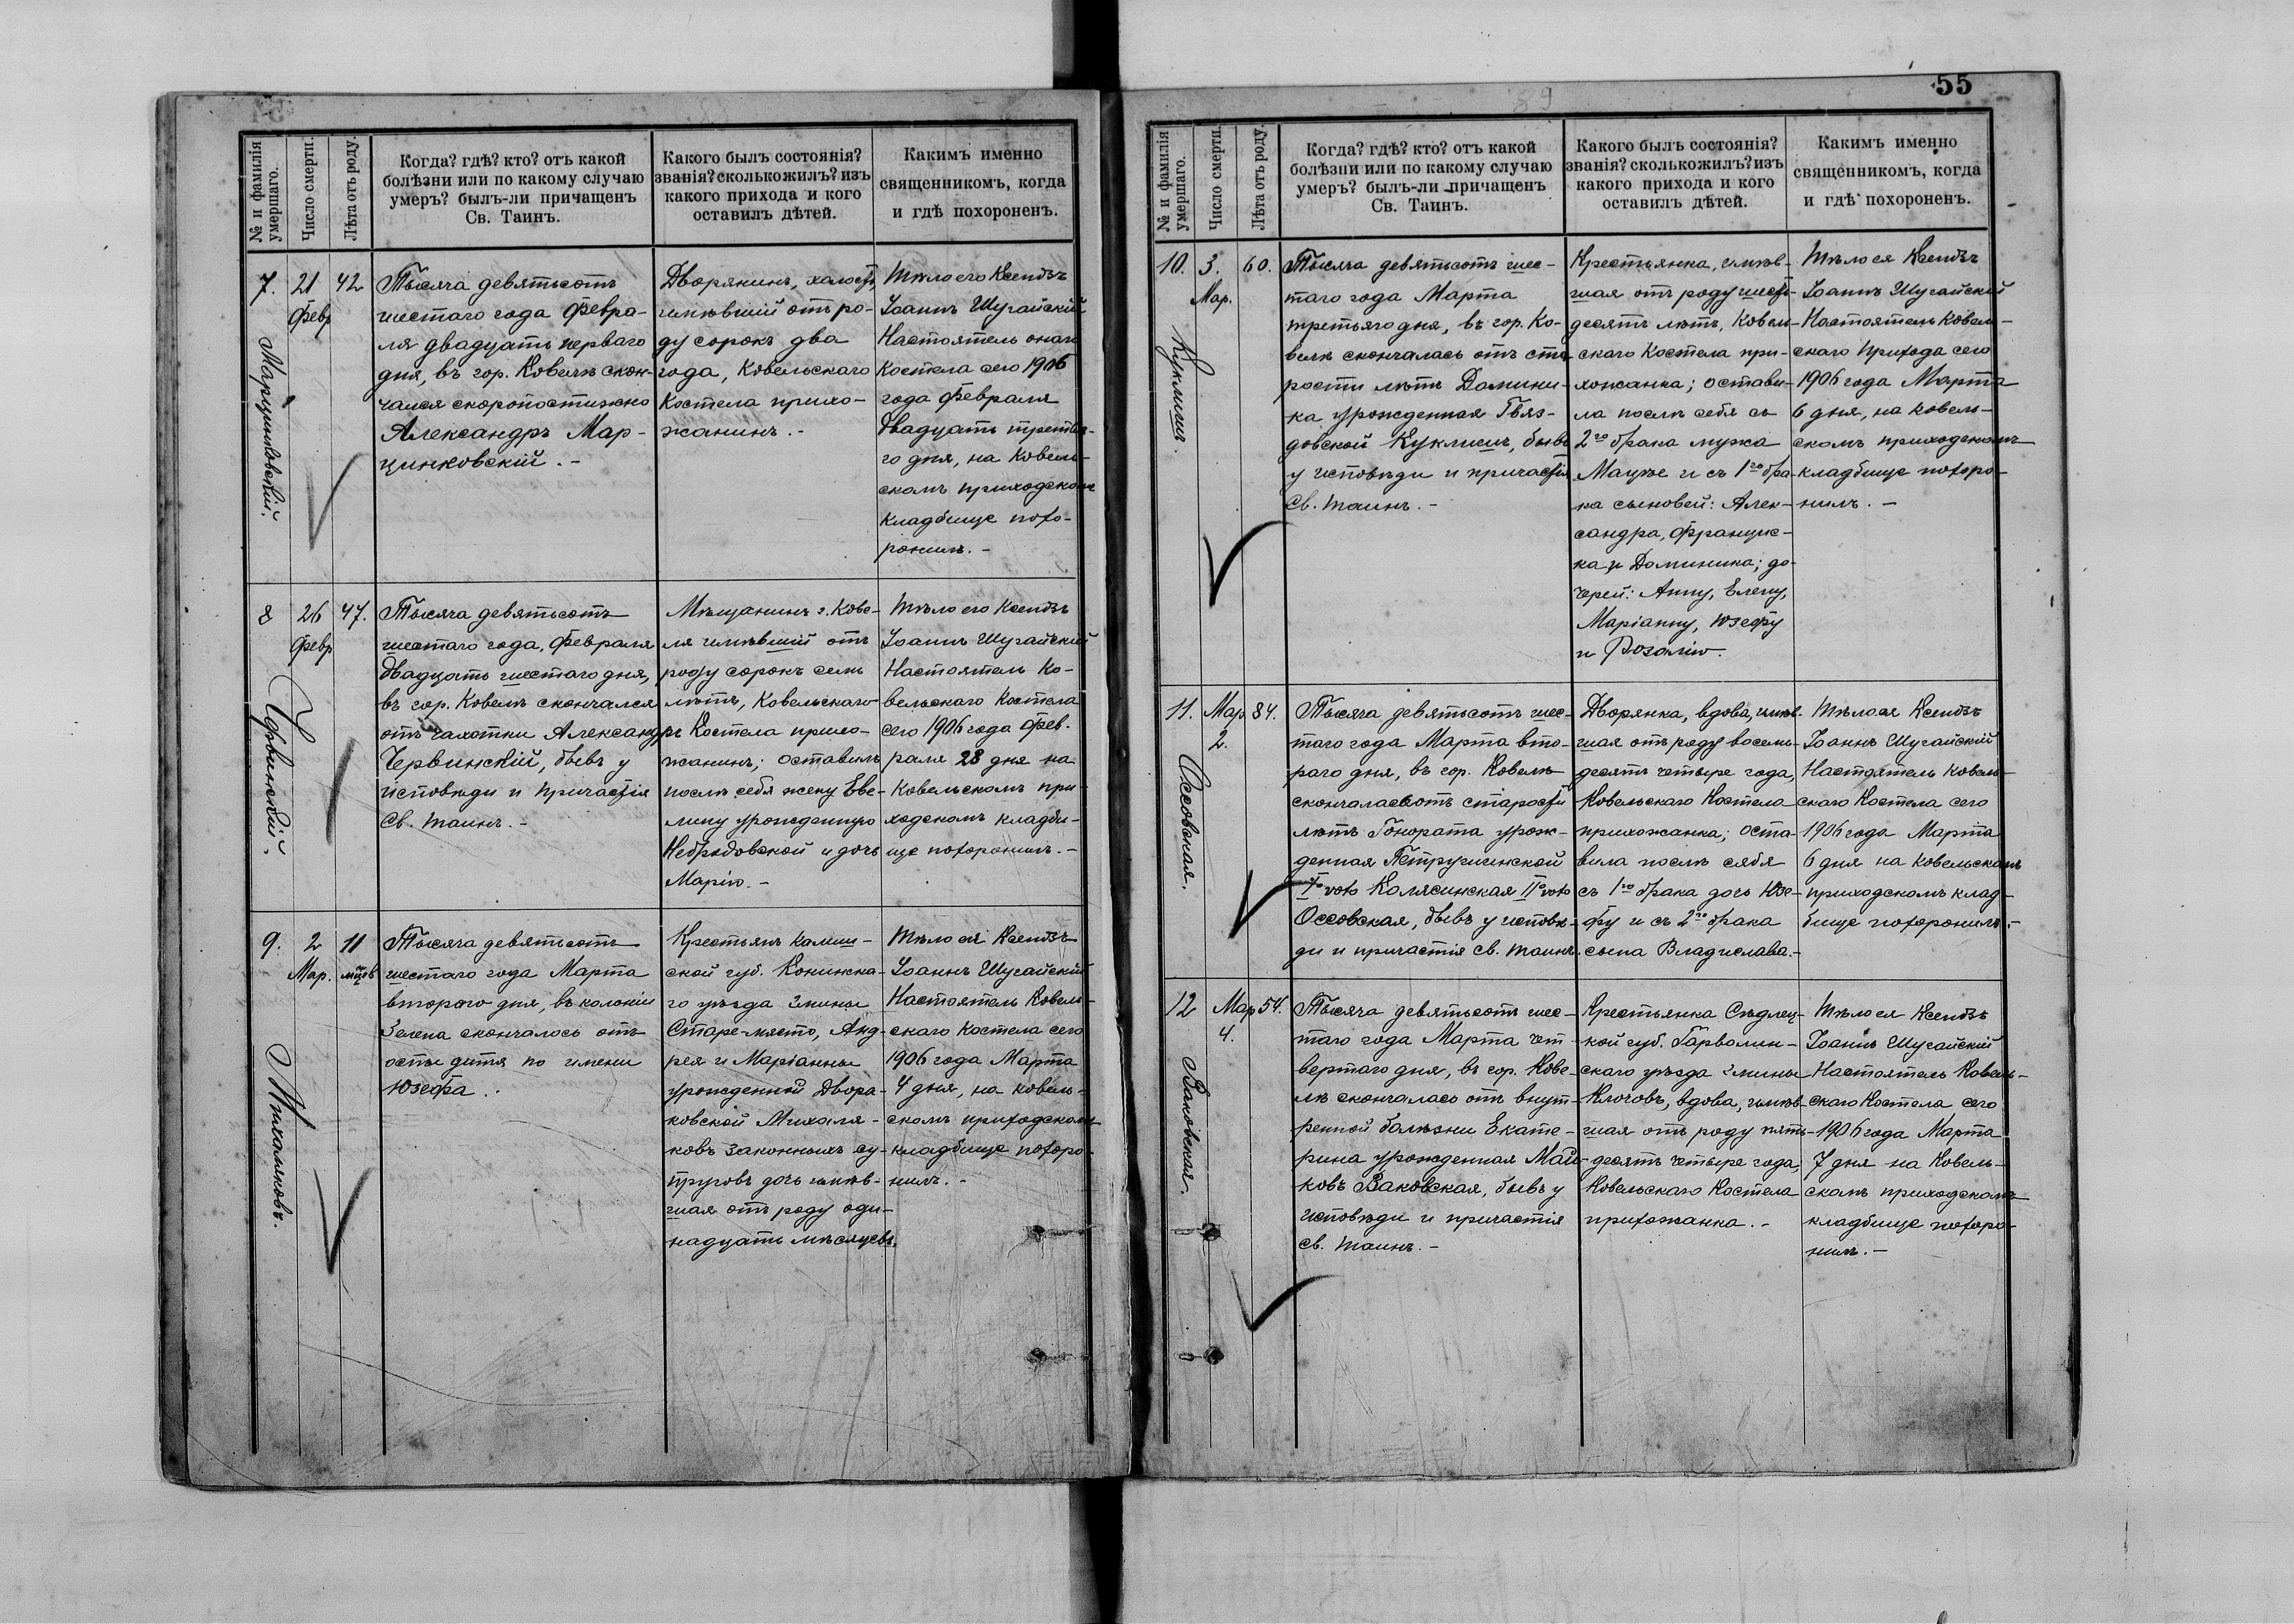 № и фамилія
умершаго.
Число смерти.
Лѣта отъ роду.
Когда? гдѣ? кто? отъ какой
болѣзни или по какому случаю
умеръ? былъ-ли причащенъ
Св. Таинъ.
Какого былъ состоянія?
званія? сколько жилъ? изъ
какого прихода и кого
оставилъ дѣтей.
Какимъ именно
священникомъ, когда
и гдѣ похороненъ.
7.
Марцинковскій.
21
Февр
42
Тысяча девятьсотъ
шестаго года Февра-
ля двадцать перваго
дня, въ гор. Ковелѣ скон-
чался скоропостижно
Александръ Мар-
цинковскій. -
Дворянинъ, холостъ,
имѣвшій отъ ро-
ду сорокъ два
года, Ковельскаго
Костела прихо-
жанинъ. -
Тѣло его Ксендзъ
Іоаннъ Шугайскій
Настоятель онаго
Костела сего 1906
года Февраля
двадцать третья-
го дня, на Ковель-
скомъ приходскомъ
кладбище похо-
ронилъ. -
8
Червинскій.
26
Февр
47.
Тысяча девятьсотъ
шестаго года, Февраля
двадцать шестаго дня,
въ гор. Ковелѣ скончался
отъ чахотки Александръ
Червинскій, бывъ у
исповѣди и причастія
Св. Таинъ. -
Мѣщанинъ г. Кове-
ля имѣвшій отъ
роду сорокъ семь
лѣтъ, Ковельскаго
Костела прихо-
жанинъ; оставилъ
послѣ себя жену Еве-
лину урожденную
Небродовской и дочь
Марію. -
Тѣло его Ксендзъ
Іоаннъ Шугайскій
Настоятель Ко-
вельскаго Костела
сего 1906 года Фев-
раля 28 дня на
Ковельскомъ при-
ходскомъ кладби-
ще похоронилъ. -
9.
Михаляковъ.
2
Мар.
11
мѣцев
Тысяча девятьсотъ
шестаго года Марта
второго дня, въ колоніи
Зелена скончалось отъ
оспы дитя по имени
Юзефа.
Крестьянъ Калиш-
ской губ. Конинска-
го уѣзда гмины
Старе-място, Анд-
рея и Маріанны
урожденной Двора-
ковской Михаля-
ковъ законныхъ су-
пруговъ дочь имѣв-
шая отъ роду оди-
надцать мѣсяцевъ.
Тѣло ея Ксендзъ
Іоаннъ Шугайскій
Настоятель Ковель-
скаго Костела сего
1906 года Марта
4 дня, на Ковель-
скомъ приходскомъ
кладбище похоро-
нилъ. -
55
№ и фамилія
умершаго.
Число смерти.
Лѣта отъ роду.
Когда? гдѣ? кто? отъ какой
болѣзни или по какому случаю
умеръ? былъ-ли причащенъ
Св. Таинъ.
Какого былъ состоянія?
званія? сколько жилъ? изъ
какого прихода и кого
оставилъ дѣтей.
Какимъ именно
священникомъ, когда
и гдѣ похороненъ.
10.
Куклишъ.
3.
Мар.
60.
Тысяча девятьсотъ шес-
таго года Марта
третьяго дня, въ гор. Ко-
велѣ скончалась отъ ста-
рости лѣтъ Домини-
ка урожденная Гвяз-
довской Куклишъ, бывъ
у исповѣди и причастія
Св. Таинъ. -
Крестьянка, имѣв-
шая отъ роду шесть-
десятъ лѣтъ, Ковель-
скаго Костела при-
хожанка; остави-
ла послѣ себя съ
2го брака мужа
Мацѣе и съ 1го бра-
ка сыновей: Алек-
сандра, Францис-
ка и Доминика; до-
черей: Анну, Елену,
Маріанну, Юзефу
и Розалію.
Тѣло ея Ксендзъ
Іоаннъ Шугайскій
Настоятель Ковель-
скаго Прихода сего
1906 года Марта
6 дня, на Ковель-
скомъ приходскомъ
кладбище похоро-
нилъ. -
11.
Оссовская.
Мар
2.
84.
Тысяча девятьсотъ шес-
таго года Марта вто-
раго дня, въ гор. Ковелѣ
скончалась отъ старости
лѣтъ Гонората урож-
денная Петрушинской
Iо voto Колясинская IIо voto
Оссовская, бывъ у исповѣ-
ди и причастія Св. Таинъ.
Дворянка, вдова, имѣв-
шая отъ роду восемь-
десятъ четыре года,
Ковельскаго Костела
прихожанка; оста-
вила послѣ себя
съ 1го брака дочь Юзе-
фу и съ 2го брака
сына Владислава. -
Тѣло ея Ксендзъ
Іоаннъ Шугайскій
Настоятель Ковель-
скаго Костела сего
1906 года Марта
6 дня на Ковельскомъ
приходскомъ клад-
бище похоронилъ. -
12
Ваковская.
Мар
4.
54.
Тысяча девятьсотъ шес-
таго года Марта чет-
вертаго дня, въ гор. Кове-
лѣ скончалась отъ внут-
ренной болѣзни Екате-
рина урожденная Май-
ковъ Ваковская, бывъ у
исповѣди и причастія
Св. Таинъ. -
Крестьянка Сѣдлец-
кой губ. Гарволин-
скаго уѣзда гмины
Клочовъ, вдова, имѣв-
шая отъ роду пять-
десятъ четыре года,
Ковельскаго Костела
прихожанка. -
Тѣло ея Ксендзъ
Іоаннъ Шугайскій
Настоятель Ковель-
скаго Костела сего
1906 года Марта
7 дня на Ковель-
скомъ приходскомъ
кладбище похоро-
нилъ. -